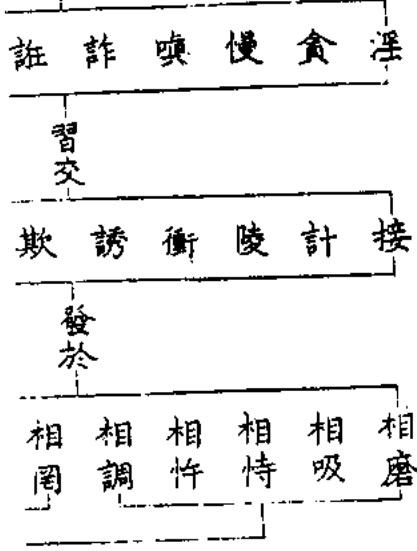 淫貪慢嗔詐誑
習交
接計陵衝誘欺
發於
相磨
相吸
相恃
相忤
相調
相罔